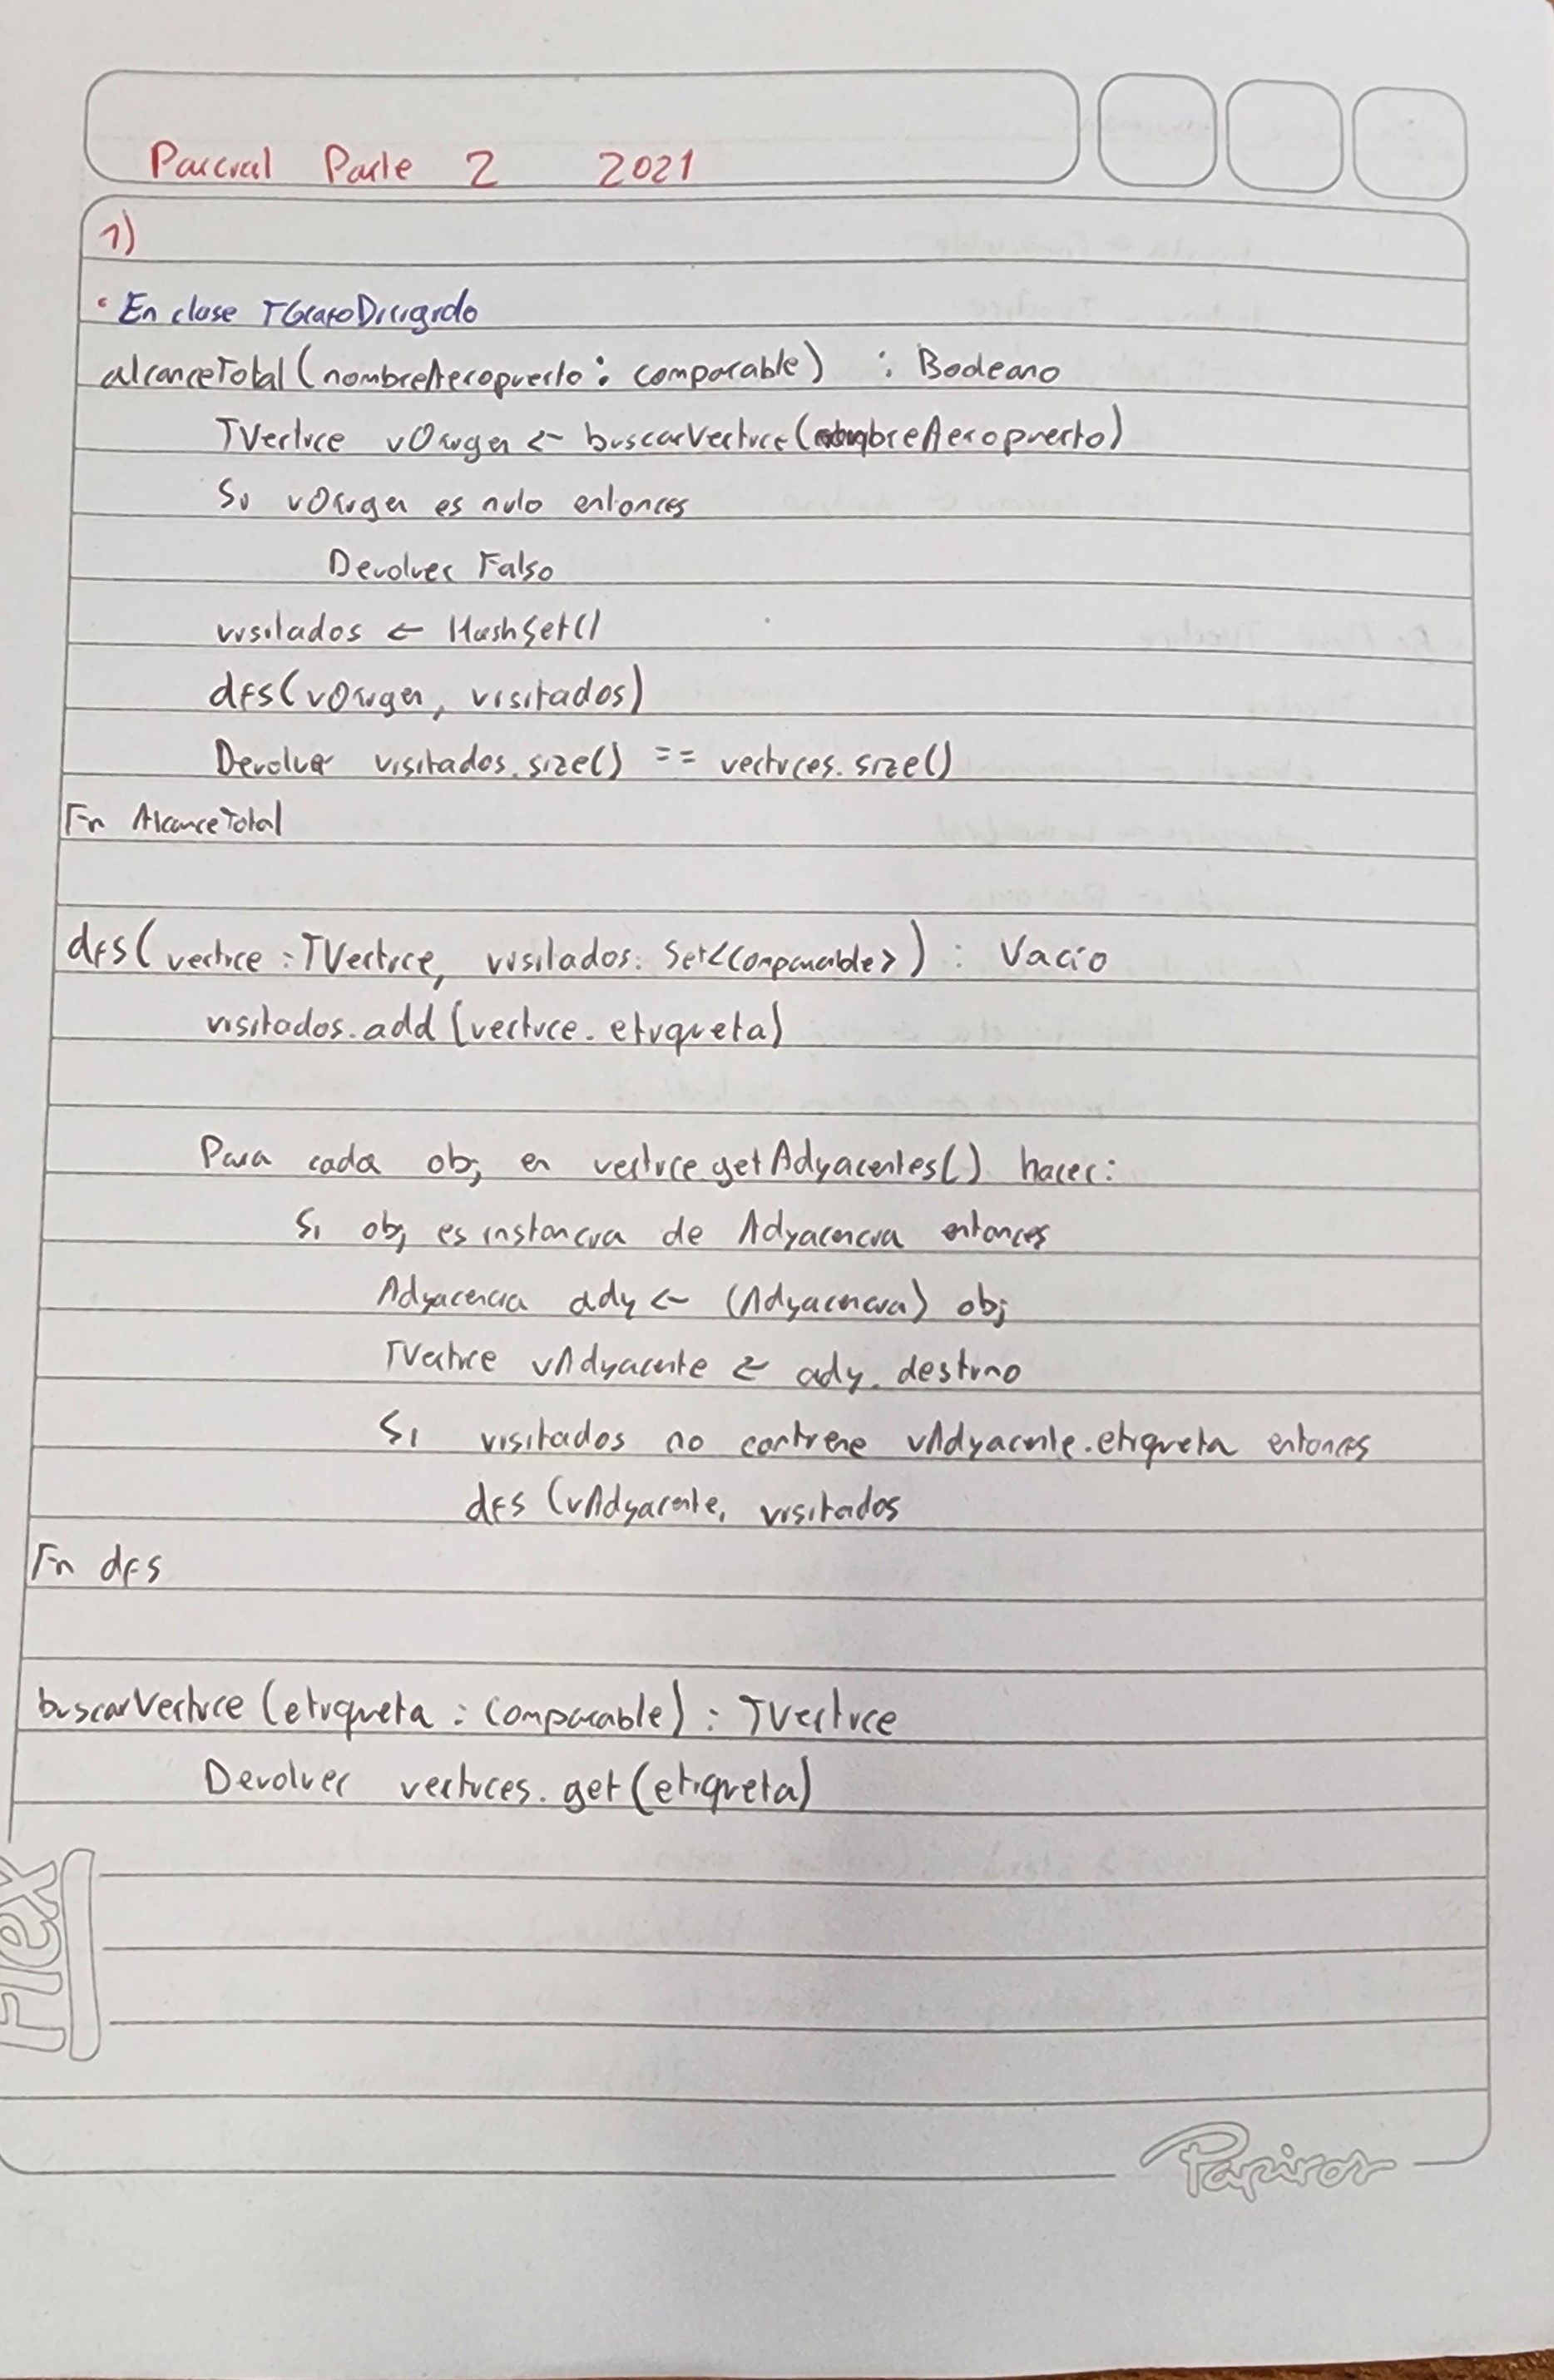 Parcial Parte 2 2021
1)
• En clase TGrafoDirigido
alcanceTotal(nombreAeropuerto: comparable) : Booleano
TVertice vOrigen <- buscarVertice(nombreAeropuerto)
Si vOrigen es nulo entonces
Devolver Falso
visitados <- HashSet()
dfs(vOrigen, visitados)
Devolver visitados.size() == vertices.size()
Fin AlcanceTotal
dfs(vertice: TVertice, visitados: Set<Comparable>) : Vacío
visitados.add(vertice.etiqueta)
Para cada obj en vertice.getAdyacentes() hacer:
Si obj es instancia de Adyacencia entonces
Adyacencia ady <- (Adyacencia) obj
TVertice vAdyacente <- ady.destino
Si visitados no contiene vAdyacente.etiqueta entonces
dfs(vAdyacente, visitados
Fin dfs
buscarVertice(etiqueta: Comparable) : TVertice
Devolver vertices.get(etiqueta)
Flex
Papiros